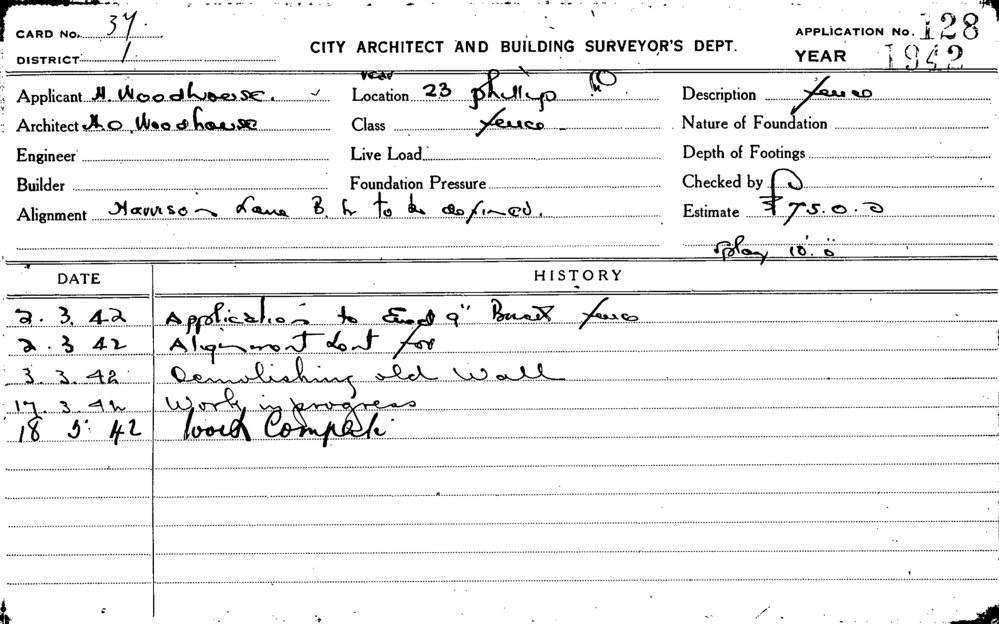 CARD No. 37.
APPLICATION No. 128
DISTRICT 1
CITY ARCHITECT AND BUILDING SURVEYOR'S DEPT.
YEAR 1942
rear
Applicant H. Woodhouse.
Location 23 Phillip
Description fence
Architect H O Woodhouse
Class fence
Nature of Foundation
Engineer
Live Load
Depth of Footings
Builder
Foundation Pressure
Checked by
Alignment Harrison Lane B. L to be defined.
Estimate £75.0.0
Splay 10'. 0"
DATE
HISTORY
2. 3. 42 Application to Erect 9" Brick fence
2. 3 42 Alignment Sent for
3. 3. 42 Demolishing old Wall
17. 3. 42 Work in progress
18 5 42 Work Complete